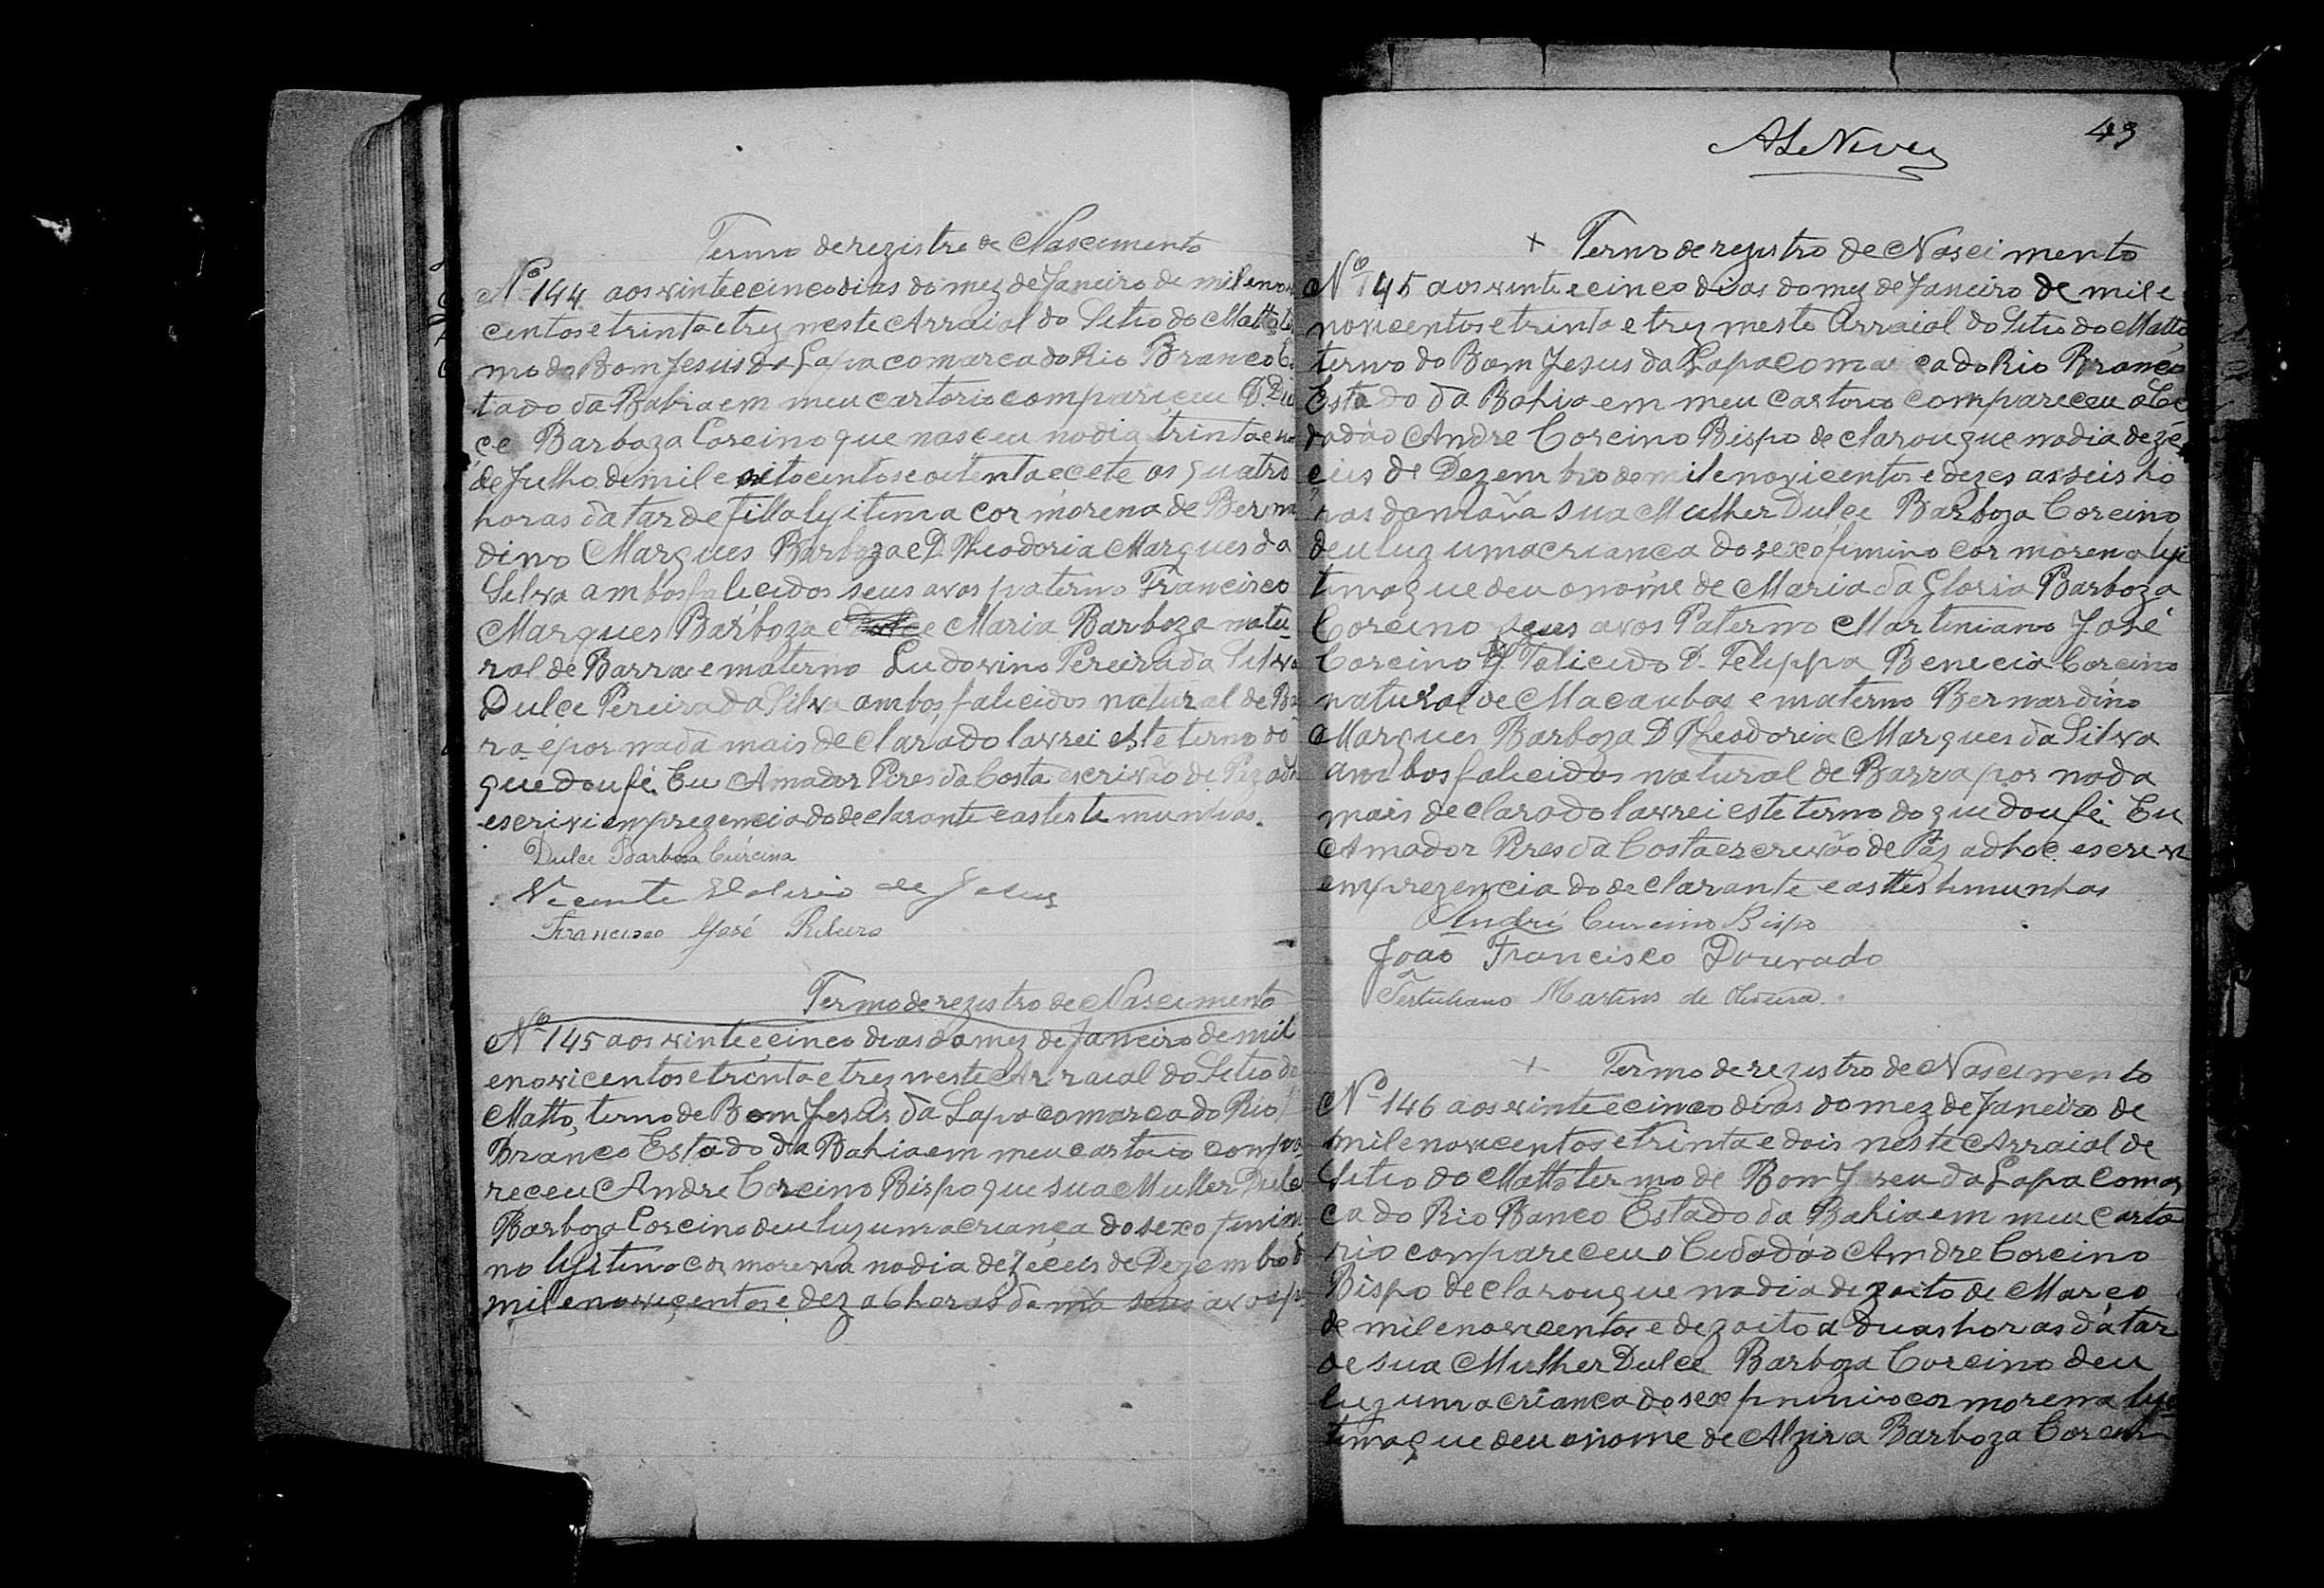 Termo de rezistre de Nascimento
Nº 144 aos vinte e cinco dias do mez de Janeiro de mil e nove
centos e trinta e trez neste Arraial do Sitio do Matto te
mo do Bom Jesus da Lapa comarca do Rio Branco Es
tado da Bahia em meu cartorio compariçeu D. Du
ce Barboza Corcino que nasceu no dia trinta e
de Julho de mil e oitocentos e oitenta e cete as quatro
horas da tarde filla lyitima cor morena de Berna
dino Marques Barboza e D. Theodoria Marques da
Silva ambos falicidos seus avos paterno Francisco
Marques Barboza e Maria Barboza natu-
ral de Barra e materno Ludovino Pereira da Silva
Dulce Pereira da Silva ambos falicidos natural de Ba
ra e por nada mais declarado lavrei este termo do
que dou fé. Eu Amador Pires da Costa escrivão de Paz ad
escrivi em prezencia do declarante e as testemunhas.
Dulce Barboza Curcina
Vicente de Jesus
Francisco José Ribeiro
Termo de rezistro de Nascimento
Nº 145 aos vinte e cinco dias do mez de Janeiro de mil
e novicentos e trinta e trez neste Arraial do Sitio do
Matto, termo de Bom Jesus da Lapa comarca do Rio
Branco Estado da Bahia em meu cartorio compa
receu Andre Corcino Bispo que sua Muller Dulce
Barboza Corcino deu luz uma criança do sexo fimini
no lijitimo cor morena no dia dezeceis de Dezembro d
mil e novicentos e dez a 6 horas da ma seus avos p
49
ALeNeves
+ Termo de registro de Nascimento
Nº 145 aos vinte e cinco dias do mez de Janeiro de mil e
novicentos e trinta e trez neste Arraial do Sitio do Matto
termo do Bom Jesus da Lapa comarca do Rio Branco
Estado da Bahia em meu cartorio compareceu o Ci
dadão Andre Corcino Bispo declarou que no dia deze
ceis de Dezembro de mil e novicentos e dezes as seis ho
ras da mañã sua Mulher Dulçe Barboza Corcino
deu luz uma criança do sexo fimino cor morena lyi
tima que deu o nome de Maria da Gloria Barboza
Corcino seus avos Paterno Martiniano José
Corcino Falicido D. Felippa Benecia Corcino
natural de Macaubas e materno Bernardino
Marques Barboza D Theodoria Marques da Silva
ambos falicidos natural de Barra por nada
mais declarado lavrei este termo do que dou fé. Eu
Amador Pires da Costa escrivão de Paz adhoc escrivi
em prezencia do declarante e as ttestimunhas
André Curcino Bispo
João Francisco Dourado
Tertuliano Martins de Oliveira.
+ Termo de rezistro de Nascimento
Nº 146 aos vinte e cinco dias do mez de Janeiro de
mil e novicentos e trinta e dois neste Arraial de
Sitio do Matto termo de Bom Jezeu da Lapa Comar
ca do Rio Banco Estado da Bahia em meu Carto
rio compareceu o Cidadão Andre Corcino
Bispo declarou que no dia dezoito de Março
de mil e novicentos e dezoito a duas horas da tar
de sua Mulher Dulce Barboza Corcino deu
luz uma criança do sex fiminino cor morena lye
tima que deu o nome de Alzira Barboza Corcin